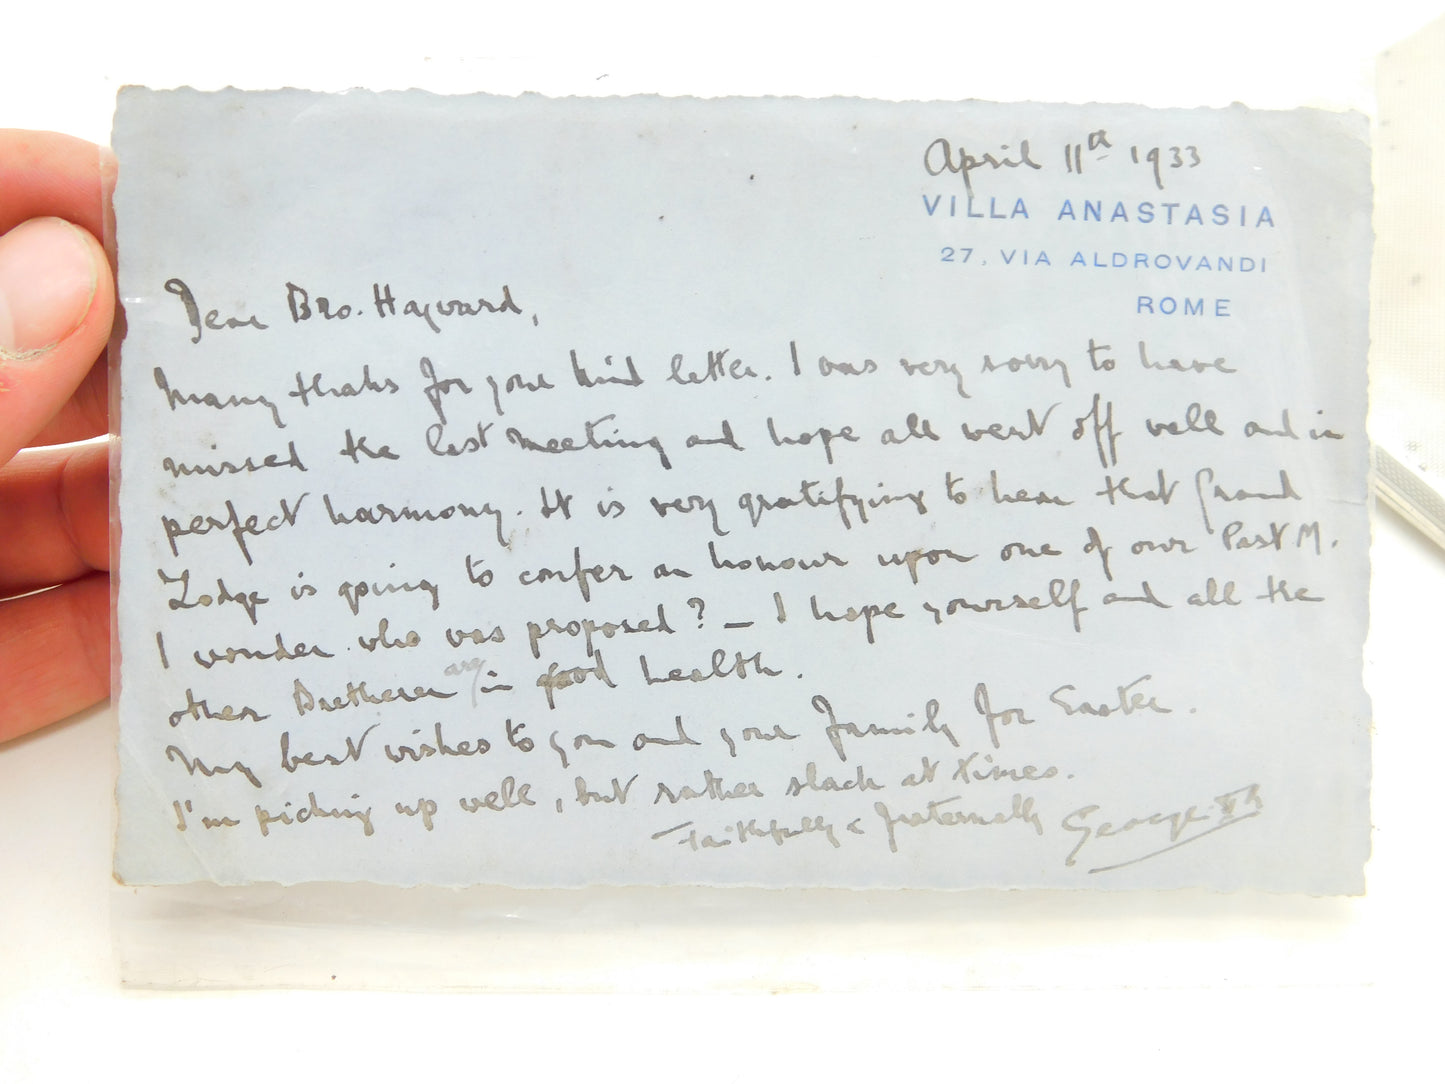 April 11th 1933
VILLA ANASTASIA
27, VIA ALDROVANDI
ROME
Dear Bro. Hayward,
Many thaks for your kind letter. I was very sorry to have
missed the last meeting and hope all went off well and in
perfect harmony. It is very gratifying to hear that Grand
Lodge is going to confer an honour upon one of our Past M.
I wonder who was proposed? — I hope yourself and all the
other Bretheren are in good health.
My best wishes to you and your family for Easter.
I'm picking up well, but rather slack at times.
Faithfully & fraternally George